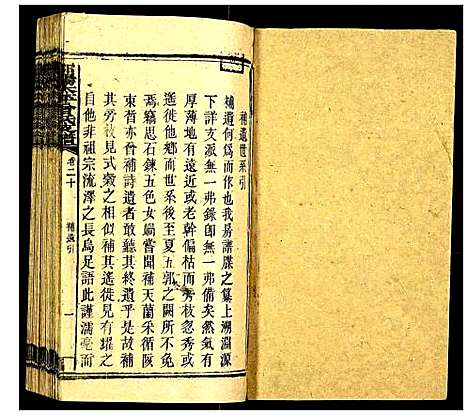 補遺世系引
補遺何爲而作也我易譜牒之纂上溯淵源
下詳支派無一弗錄卽無一弗備矣然氣有
厚薄地有遠近或老幹偏枯而旁枝忽秀或
遙徙他鄉而世系往後至之夏五郭公之闕所不免
焉竊思石鍊五色女媧嘗聞補天蘭采循陔
束晳亦曾補詩遺者敢聽其終遺乎是故補
其旁枝見式穀之相似補其遙徙見有壤之
自他非祖宗流澤之長烏足語此謹濡毫而
卷二十
補遺引
一